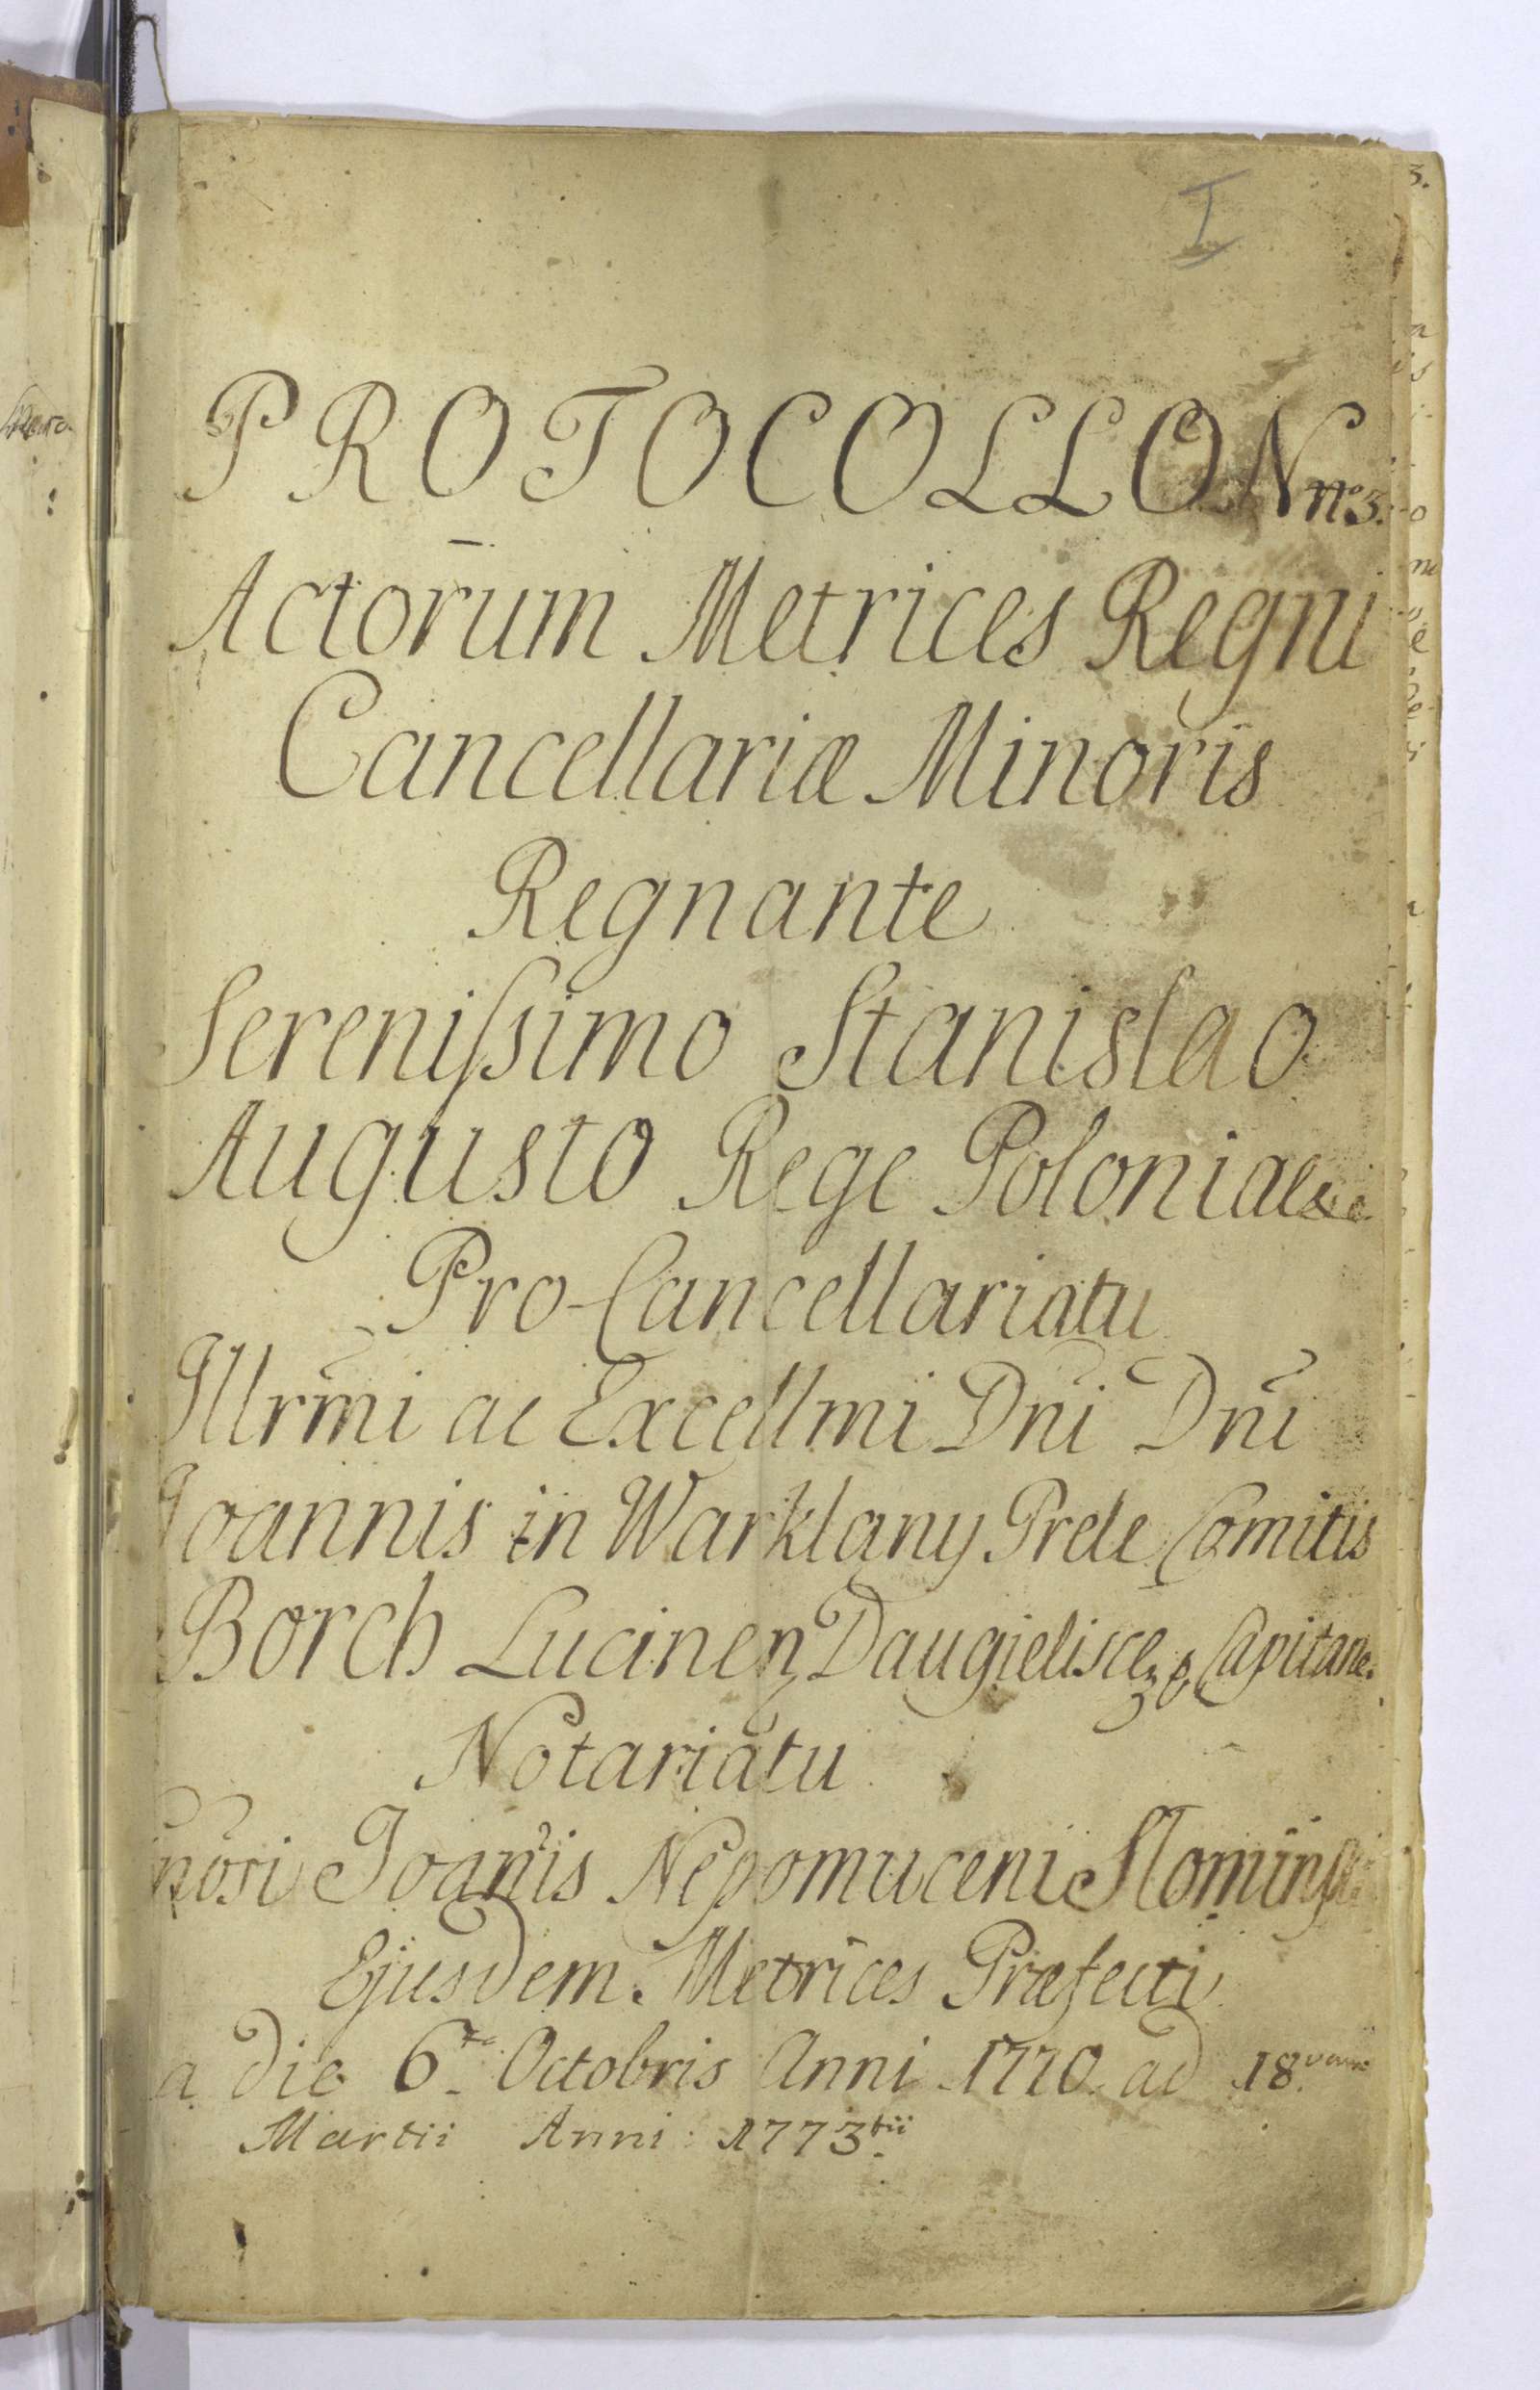 I
PROTOCOLLON nº3.
Actorum Metrices Regni
Cancellariæ Minoris
Regnante
Sereniſsimo Stanislao
Augusto Rege Poloniae
Pro-Cancellariatu
Illrm̃i ac Excellmi Dñi Dñi
Joannis in Warklany Prele Comitis
Borch Lucinen Daugielisce & Capitane.
Notariatu
Joañis Nepomuceni Slominſki
Ejusdem Metrices Præfecti
a die 6ta Octobris Anni 1770. ad 18.vam
Martii Anni 1773tii